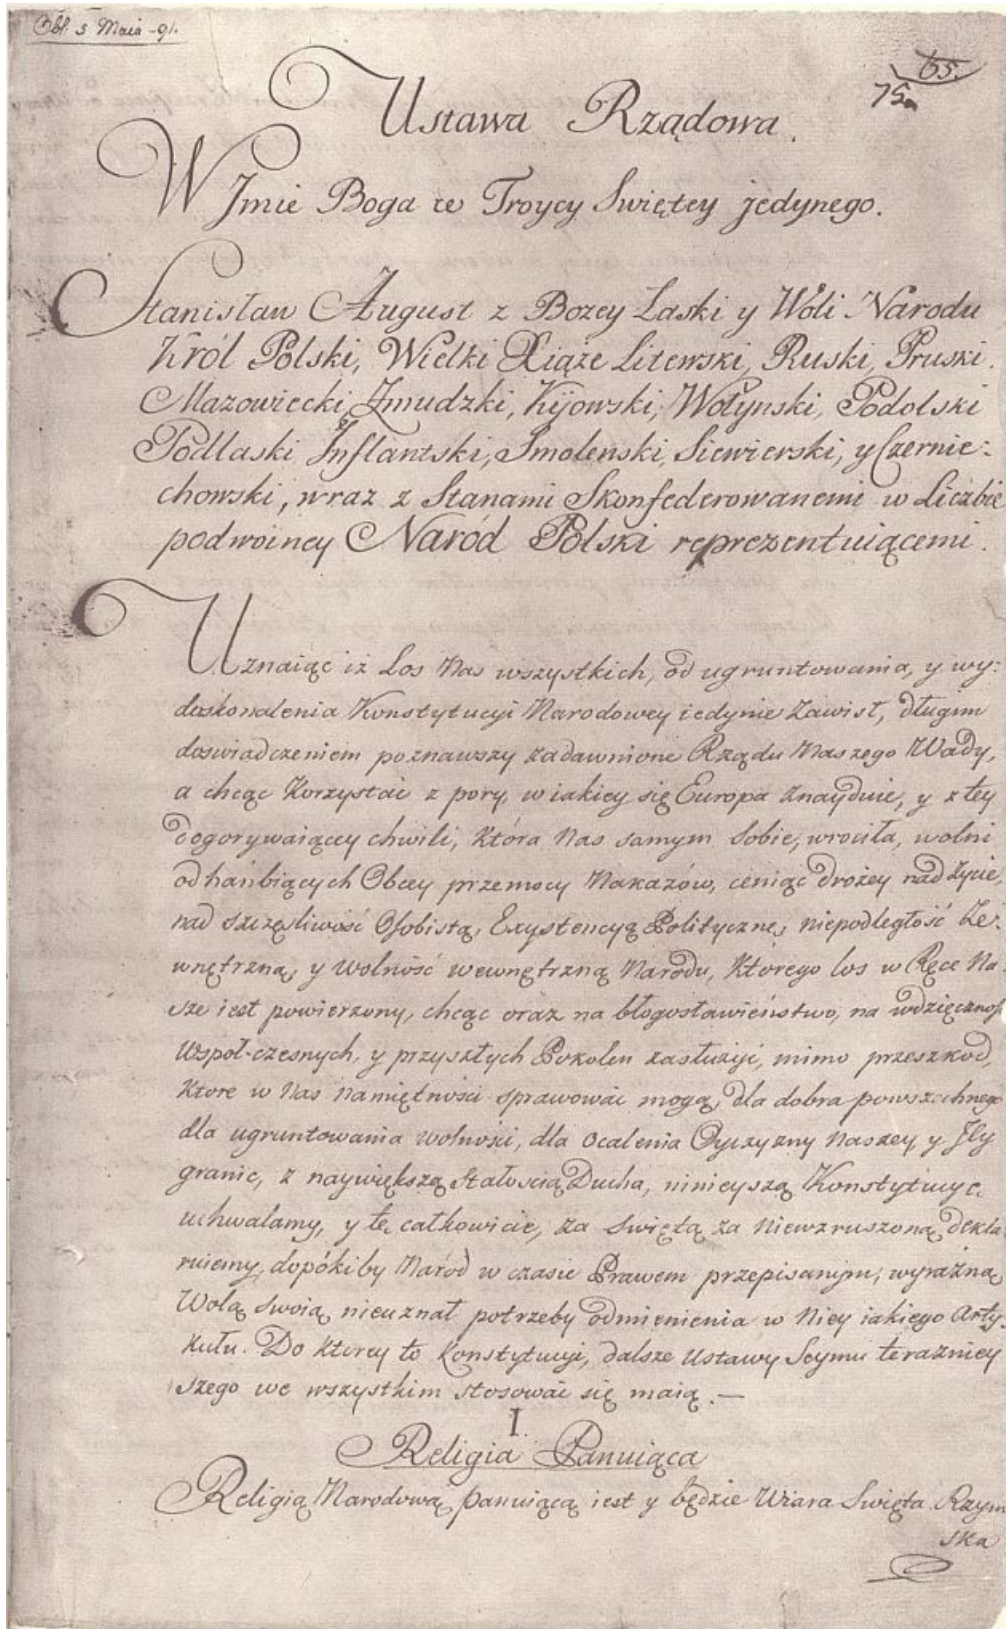 Obl. 5 Maia -91.
65.
75a
Ustawa Rządowa.
W Jmie Boga w Troycy Swiętey jedynego.
Stanisław August z Bozey Łaski y Woli Narodu
Król Polski, Wielki Xiąże Litewski, Ruski, Pruski.
Mazowiecki, Zmudzki, Kijowski, Wołynski, Podolski
Podlaski Inflantski, Smolenski, Siewierski, y Czernie:
chowski, wraz z Stanami Skonfederowanemi w Liczbie
podwoiney Naród Polski reprezentuiącemi.
Uznaiąc iż Los Nas wszystkich, od ugruntowania, y wy:
doskonalenia Konstytucyi Narodowey iedynie zawisł, długim
doswiadczeniem poznawszy zadawnione Rządu Naszego Wady,
a chcąc Korzystać z pory, w iakiey się Europa znayduie, y z tey
dogorywaiącey chwili, która Nas samym Sobie, wrociła, wolni
od hańbiących Obcey przemocy Nakazów, ceniąc drożey nad życie,
nad szczęśliwość Osobistą, Exystencyą Polityczną, niepodległość ze:
wnętrzną, y wolność wewnętrzną Narodu, Ktorego los w Ręce Na:
sze iest powierzony, chcąc oraz na błogosławieństwo, na wdzięczność
Współ-czesnych, y przyszłych Pokolen zasłużyć, mimo przeszkod,
Ktore w Nas Namiętności sprawować mogą, dla dobra powszechnego
dla ugruntowania wolności, dla Ocalenia Oyczyzny Naszey, y Jey
granic, z naywiększą Stałością Ducha, ninieyszą Konstytucyę
uchwalamy, y tę całkowicie, za Swiętą za Niewzruszoną dekla:
ruiemy, dopókiby Naród w czasie Prawem przepisanym, wyraźną
Wolą swoią nieuznał potrzeby odmienienia w Niey iakiego Arty:
kułu. Do Ktorey to Konstytucyi, dalsze Ustawy Seymu teraźniey
szego we wszystkim stosować się maią. —
I.
Religia Panuiąca
Religią Narodową panuiącą iest y będzie Wiara Swięta Rzym
ska